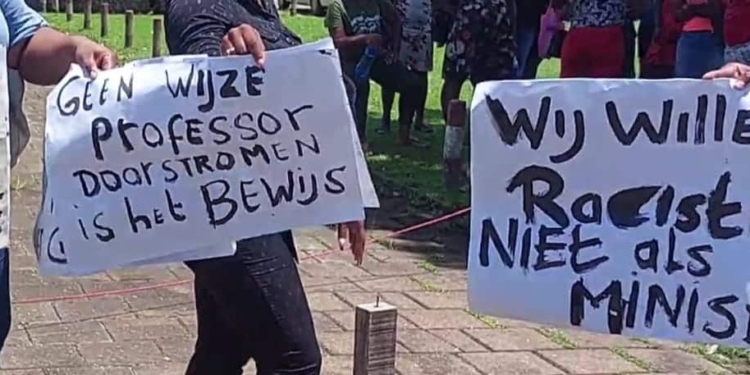 GEEN WIJZE
PROFESSOR
DOORSTROMEN
is het BEWIJS
Wij Wille
Racist
NIET als
MINIS